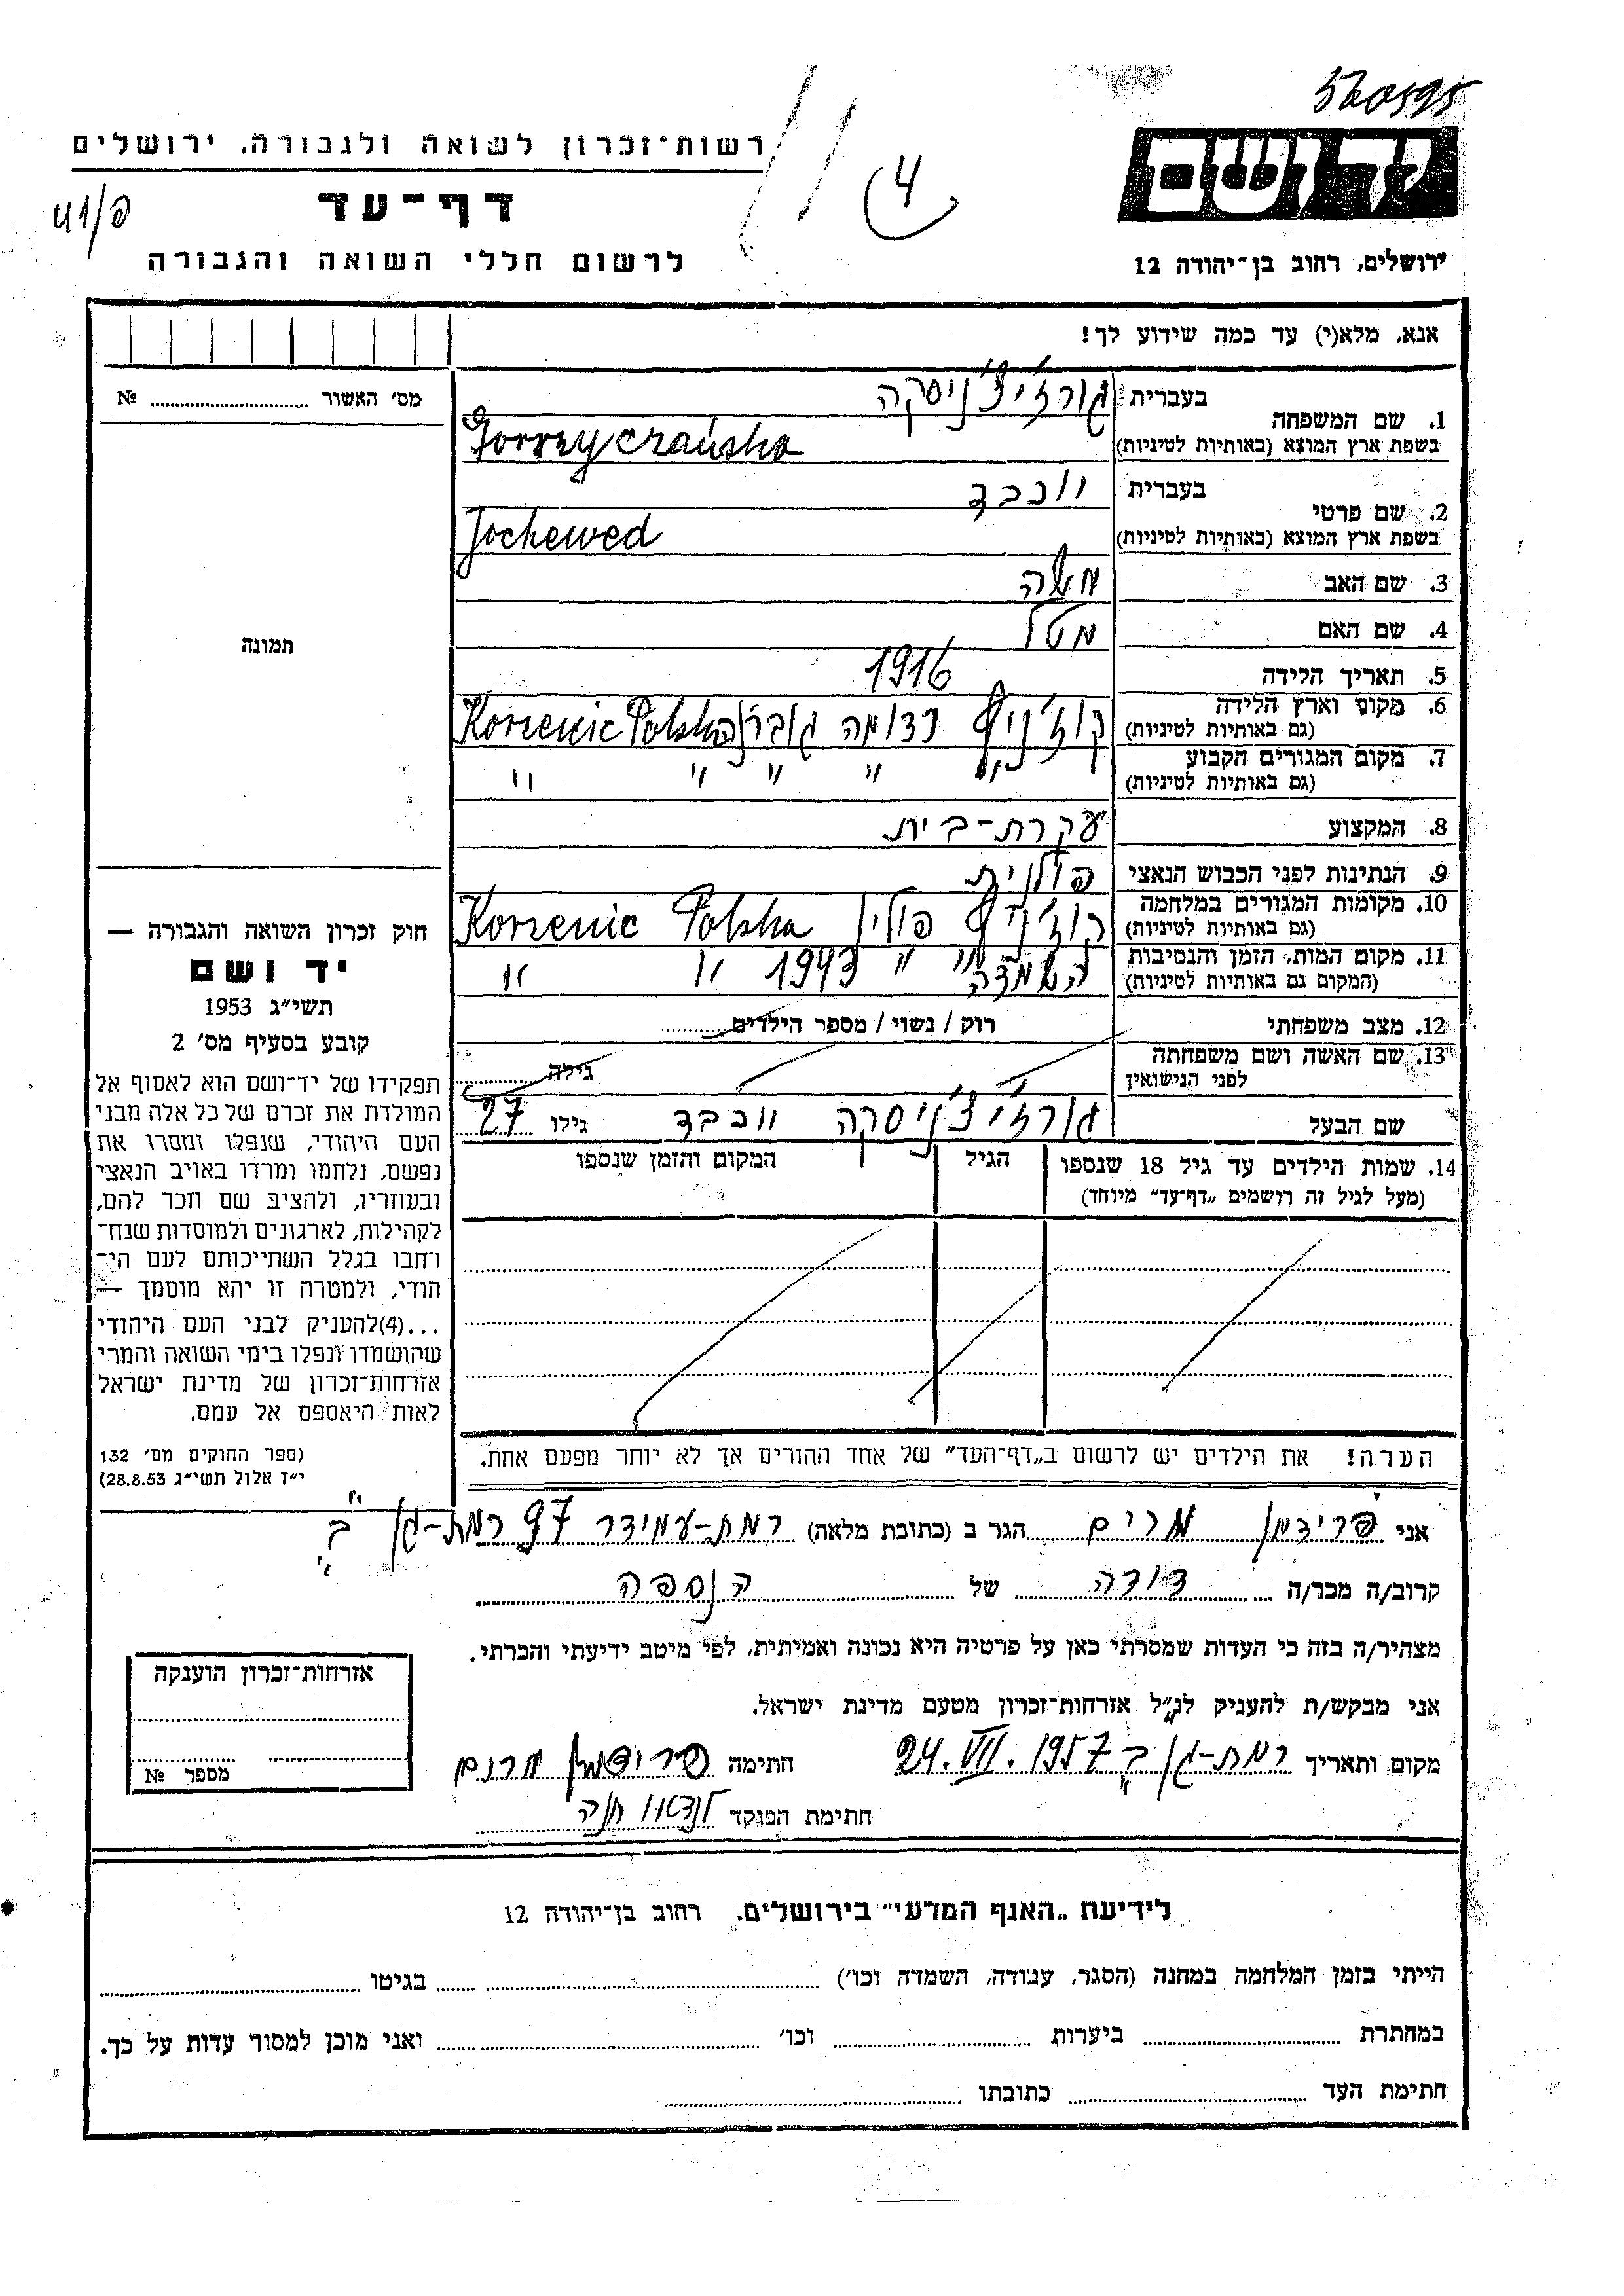 520595
יד ושם
רשות־זכרון לשואה ולגבורה, ירושלים
4
דף־עד
לרשום חללי השואה והגבורה
ירושלים, רחוב בן־יהודה 12
אנא, מלא(י) עד כמה שידוע לך!
מס׳ האשור № 
1. שם המשפחה
בעברית
בשפת ארץ המוצא (באותיות לטיניות)
2. שם פרטי
בעברית יוכבד
בשפת ארץ המוצא (באותיות לטיניות) Jochewed
3. שם האב משה
4. שם האם מטל
5. תאריך הלידה 1916
6. מקום וארץ הלידה קוז׳ניץ Polska
(גם באותיות לטיניות)
7. מקום המגורים הקבוע " " " " "
(גם באותיות לטיניות)
8. המקצוע עקרת-בית
9. הנתינות לפני הכבוש הנאצי פולנית
10. מקומות המגורים במלחמה קוז׳ניץ פולין Korzenic Polska
(גם באותיות לטיניות)
11. מקום המות, הזמן והנסיבות השמדה " " 1943 " "
(המקום גם באותיות לטיניות)
12. מצב משפחתי רוק / נשוי / מספר הילדים
13. שם האשה ושם משפחתה
לפני הנישואין גילה
שם הבעל יוכבד גילו 27
14. שמות הילדים עד גיל 18 שנספו
(מעל לגיל זה רושמים „דף־עד” מיוחד)
הגיל
המקום והזמן שנספו
הערה! את הילדים יש לרשום ב„דף־העד” של אחד ההורים אך לא יותר מפעם אחת.
תמונה
חוק זכרון השואה והגבורה —
יד ושם
תשי״ג 1953
קובע בסעיף מס׳ 2
תפקידו של יד־ושם הוא לאסוף אל
המולדת את זכרם של כל אלה מבני
העם היהודי, שנפלו ומסרו את
נפשם, נלחמו ומרדו באויב הנאצי
ובעוזריו, ולהציב שם וזכר להם,
לקהילות, לארגונים ולמוסדות שנח־
רחבו בגלל השתייכותם לעם הי־
הודי, ולמטרה זו יהא מוסמך —
...(4)להעניק לבני העם היהודי
שהושמדו ונפלו בימי השואה והמרי
אזרחות־זכרון של מדינת ישראל
לאות היאספם אל עמם.
(ספר החוקים מס׳ 132
י״ז אלול תשי״ג 28.8.53)
אני פרידמן מרים הגר ב (כתובת מלאה) רמת-עמידר 97 רמת-גן ב
קרוב/ה מכר/ה דודה של הנספה
מצהיר/ה בזה כי העדות שמסרתי כאן על פרטיה היא נכונה ואמיתית, לפי מיטב ידיעתי והכרתי.
אני מבקש/ת להעניק לנ״ל אזרחות־זכרון מטעם מדינת ישראל.
מקום ותאריך רמת-גן ב 24.VII.1957 חתימה פרידמן מרים
חתימת הפוקד לנדאו חנה
אזרחות־זכרון הוענקה
מספר №
לידיעת „האגף המדעי” בירושלים, רחוב בן־יהודה 12
הייתי בזמן המלחמה במחנה (הסגר, עבודה, השמדה וכו׳) בגיטו
במחתרת ביערות וכו׳ ואני מוכן למסור עדות על כך.
חתימת העד כתובתו